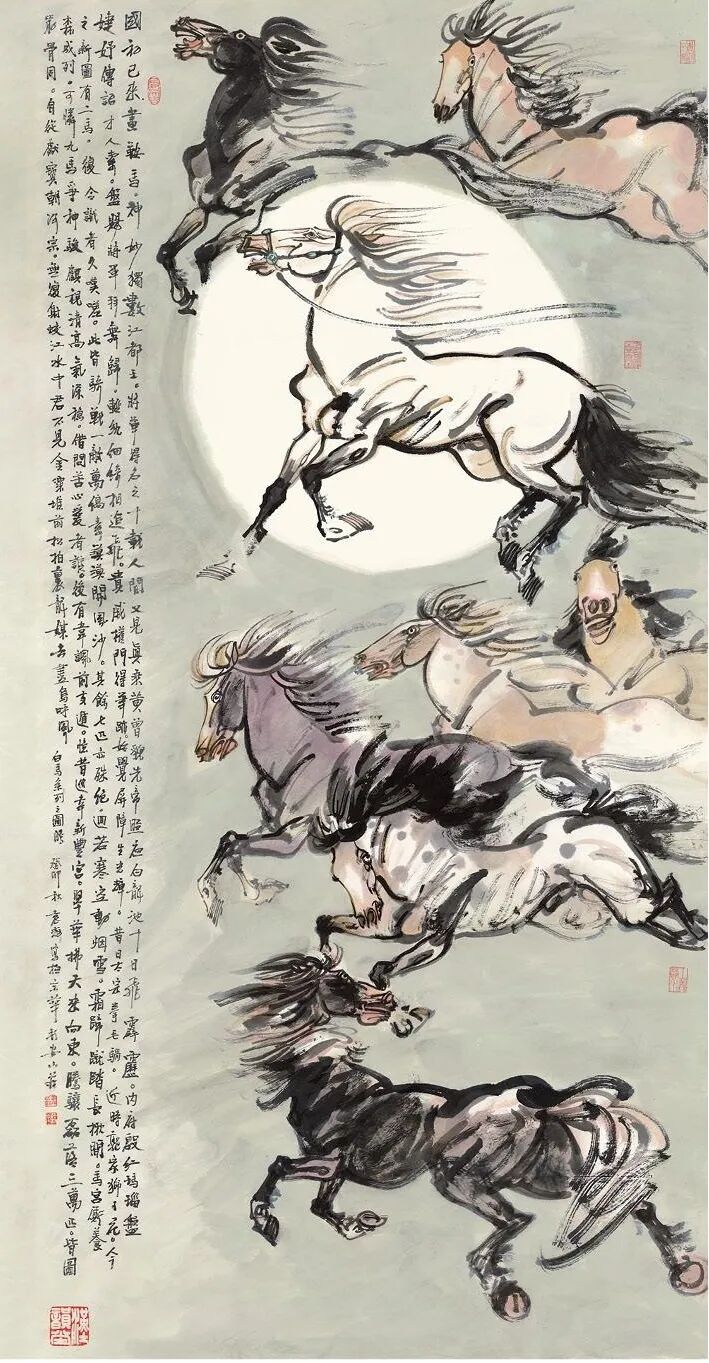 國初已來畫鞍馬。神妙獨數江都王。將軍得名三十載人間又見真乘黃曾貌先帝照夜白龍池十日飛霹靂。內府殷紅瑪瑙盤
婕妤傳詔才人索。盤賜將軍拜舞歸。輕紈細綺相追飛。貴戚權門得筆跡始覺屏障生光輝。昔日太宗拳毛騧。近時郭家獅子花。今
之新圖有二馬。復令識者久嘆嗟。此皆騎戰一敵萬縞素漠漠開風沙。其餘七匹亦殊絕。迥若寒空動烟雪。霜蹄蹴踏長楸間。馬官廝養
森成列。可憐九馬爭神駿顧視清高氣深穩。借問苦心愛者誰。後有韋諷前支遁。憶昔巡幸新豐宮。翠華拂天來向東。騰驤磊落三萬匹。皆圖
筋骨同。自從獻寶朝河宗。無復射蛟江水中君不見金粟堆前松柏裏龍媒去盡鳥呼風 白馬系列之圖 癸卯秋 寫於京華 山莊